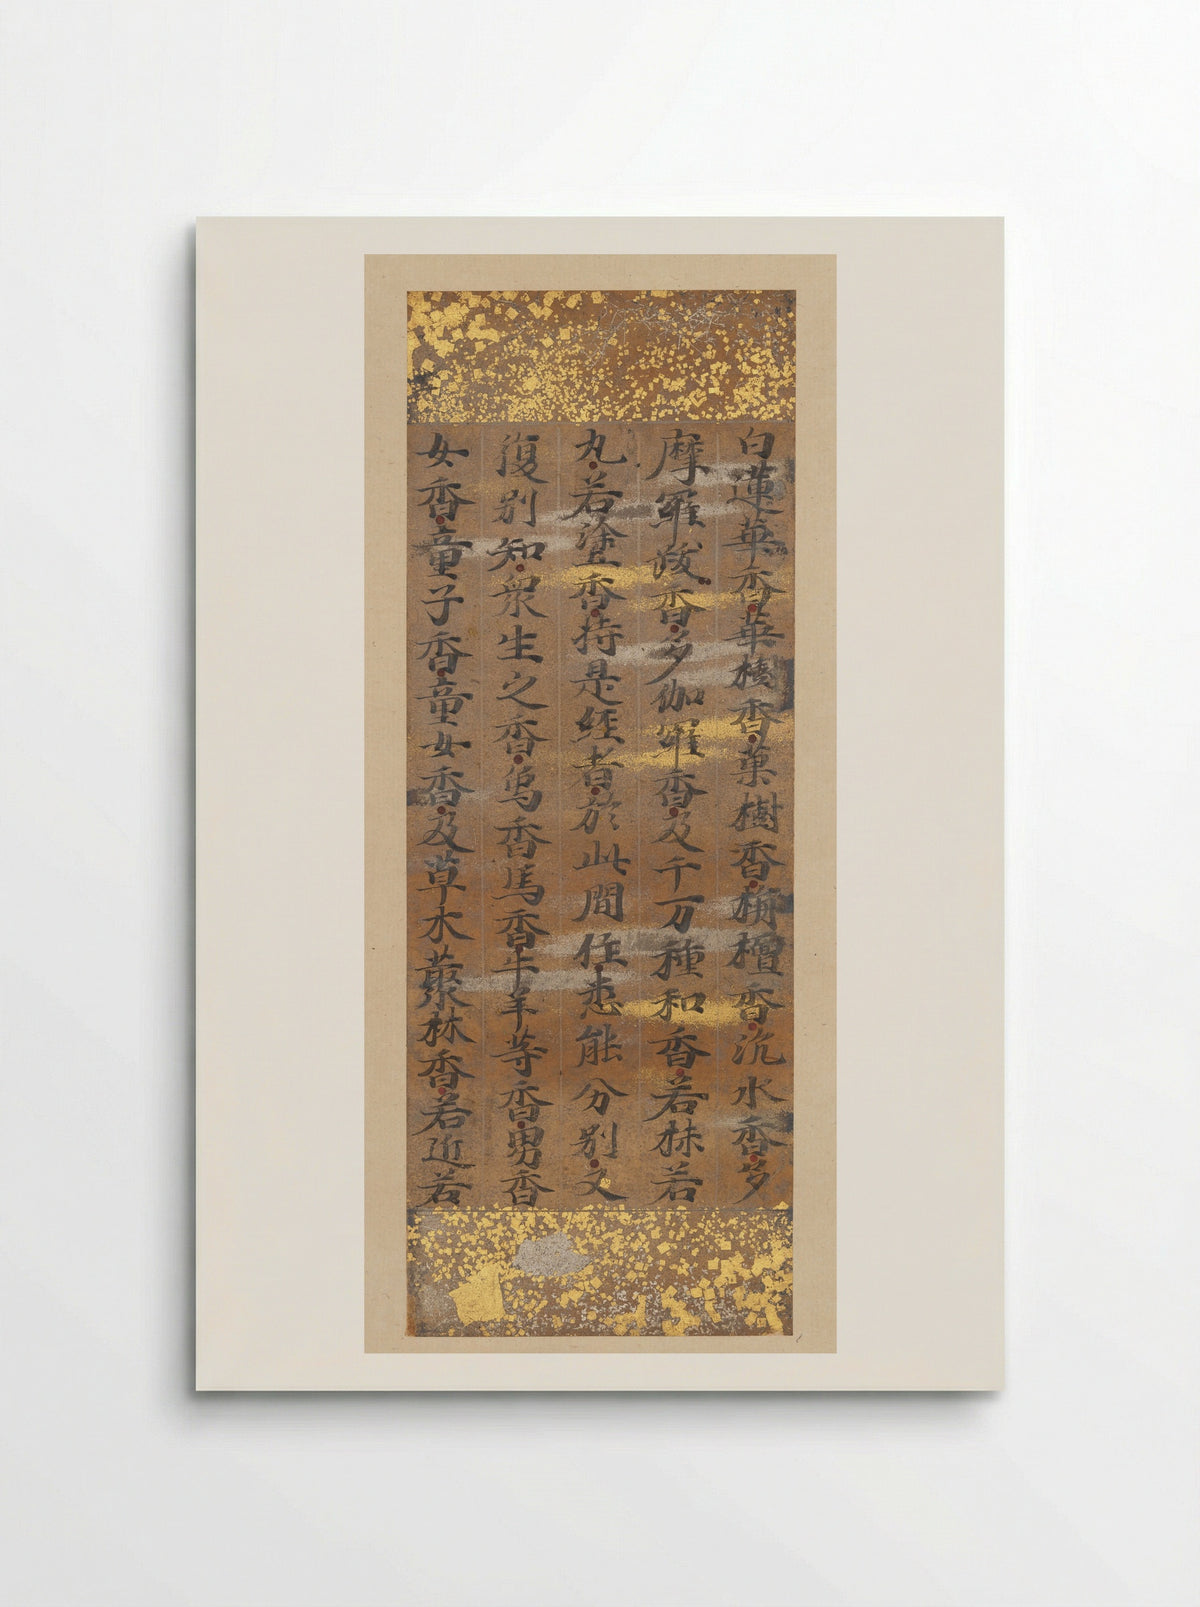 白蓮華香華樹香菓樹香栴檀香沉水香多
摩羅跋香多伽羅香及千万種和香若抹若
丸若塗香持是経者於此間住悉能分別又
復別知衆生之香象香馬香牛羊等香男香
女香童子香童女香及草木叢林香若近若